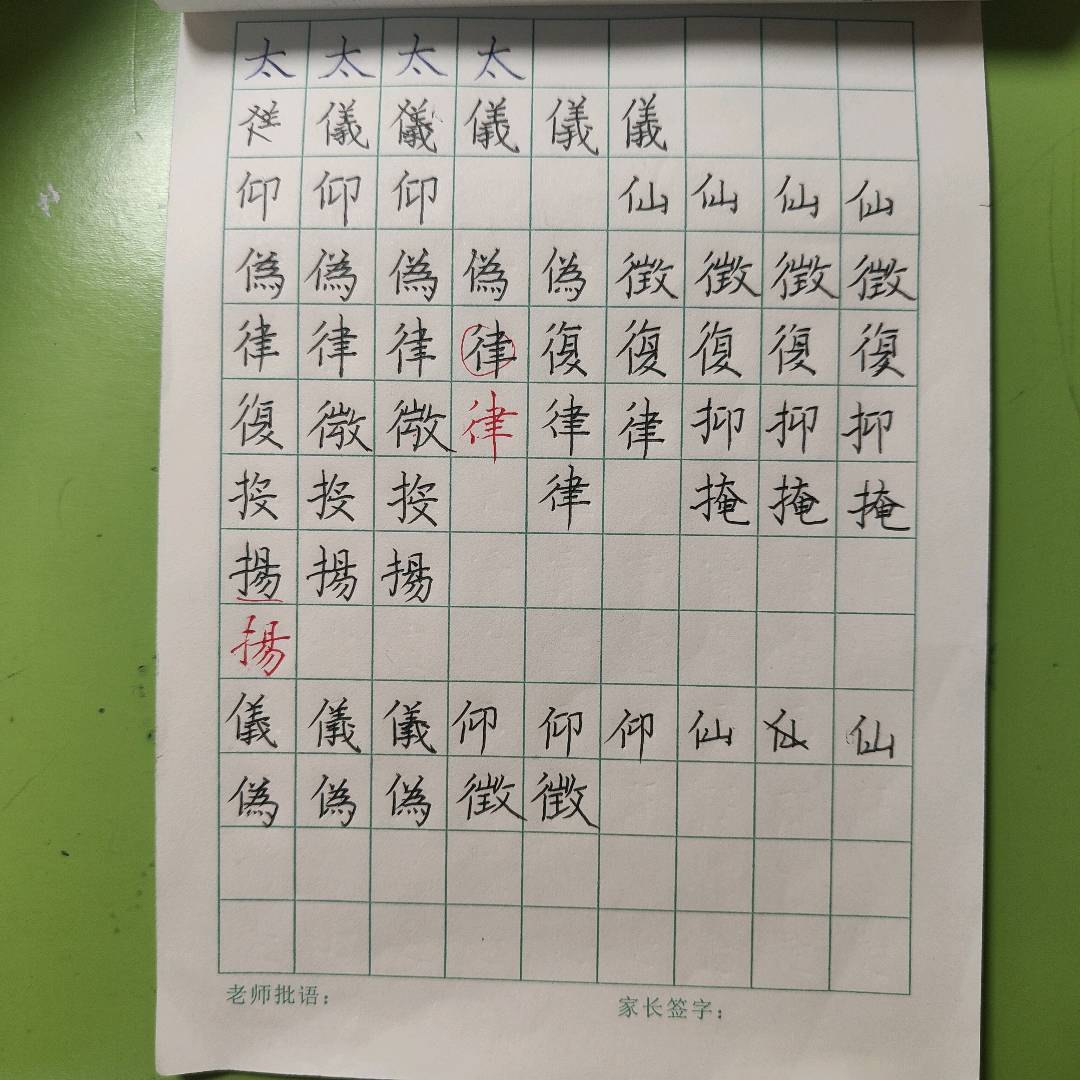 太 太 太 太
儀 儀 儀 儀 儀
仰 仰 仰 仙 仙 仙 仙
偽 偽 偽 偽 偽 徴 徴 徴 徴
律 律 律 律 復 復 復 復 復
復 微 微 律 律 律 抑 抑 抑
投 投 投 律 掩 掩 掩
揚 揚 揚
揚
儀 儀 儀 仰 仰 仰 仙 仙 仙
偽 偽 偽 徴 徴
老师批语： 家长签字：